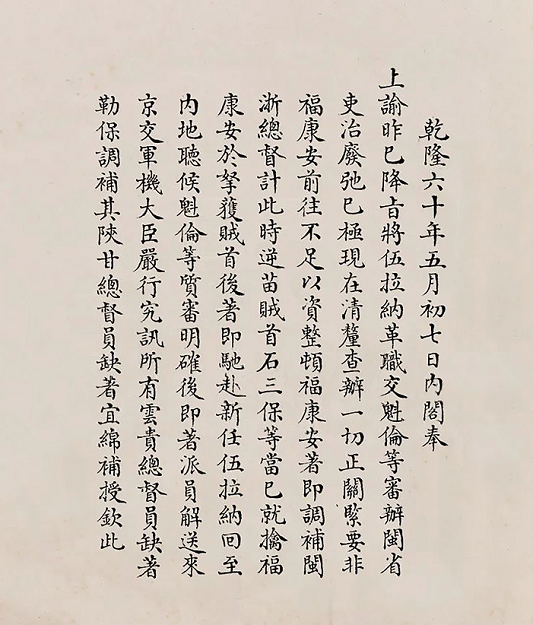 乾隆六十年五月初七日内閣奉
上諭昨已降旨將伍拉納革職交魁倫等審辦閩省
吏治廢弛已極現在清釐查辦一切正關緊要非
福康安前往不足以資整頓福康安著即調補閩
浙總督計此時逆苗賊首石三保等當已就擒福
康安於拏獲賊首後著即馳赴新任伍拉納回至
内地聽候魁倫等質審明確後即著派員解送來
京交軍機大臣嚴行究訊所有雲貴總督員缺著
勒保調補其陝甘總督員缺著宜綿補授欽此